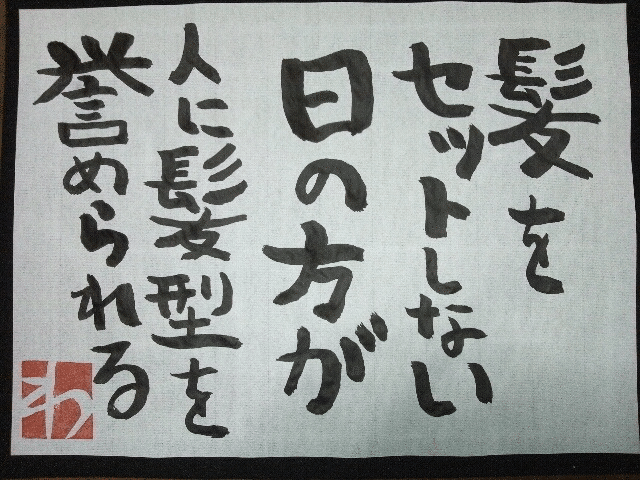 髪を
セットしない
日の方が
人に髪型を
誉められる